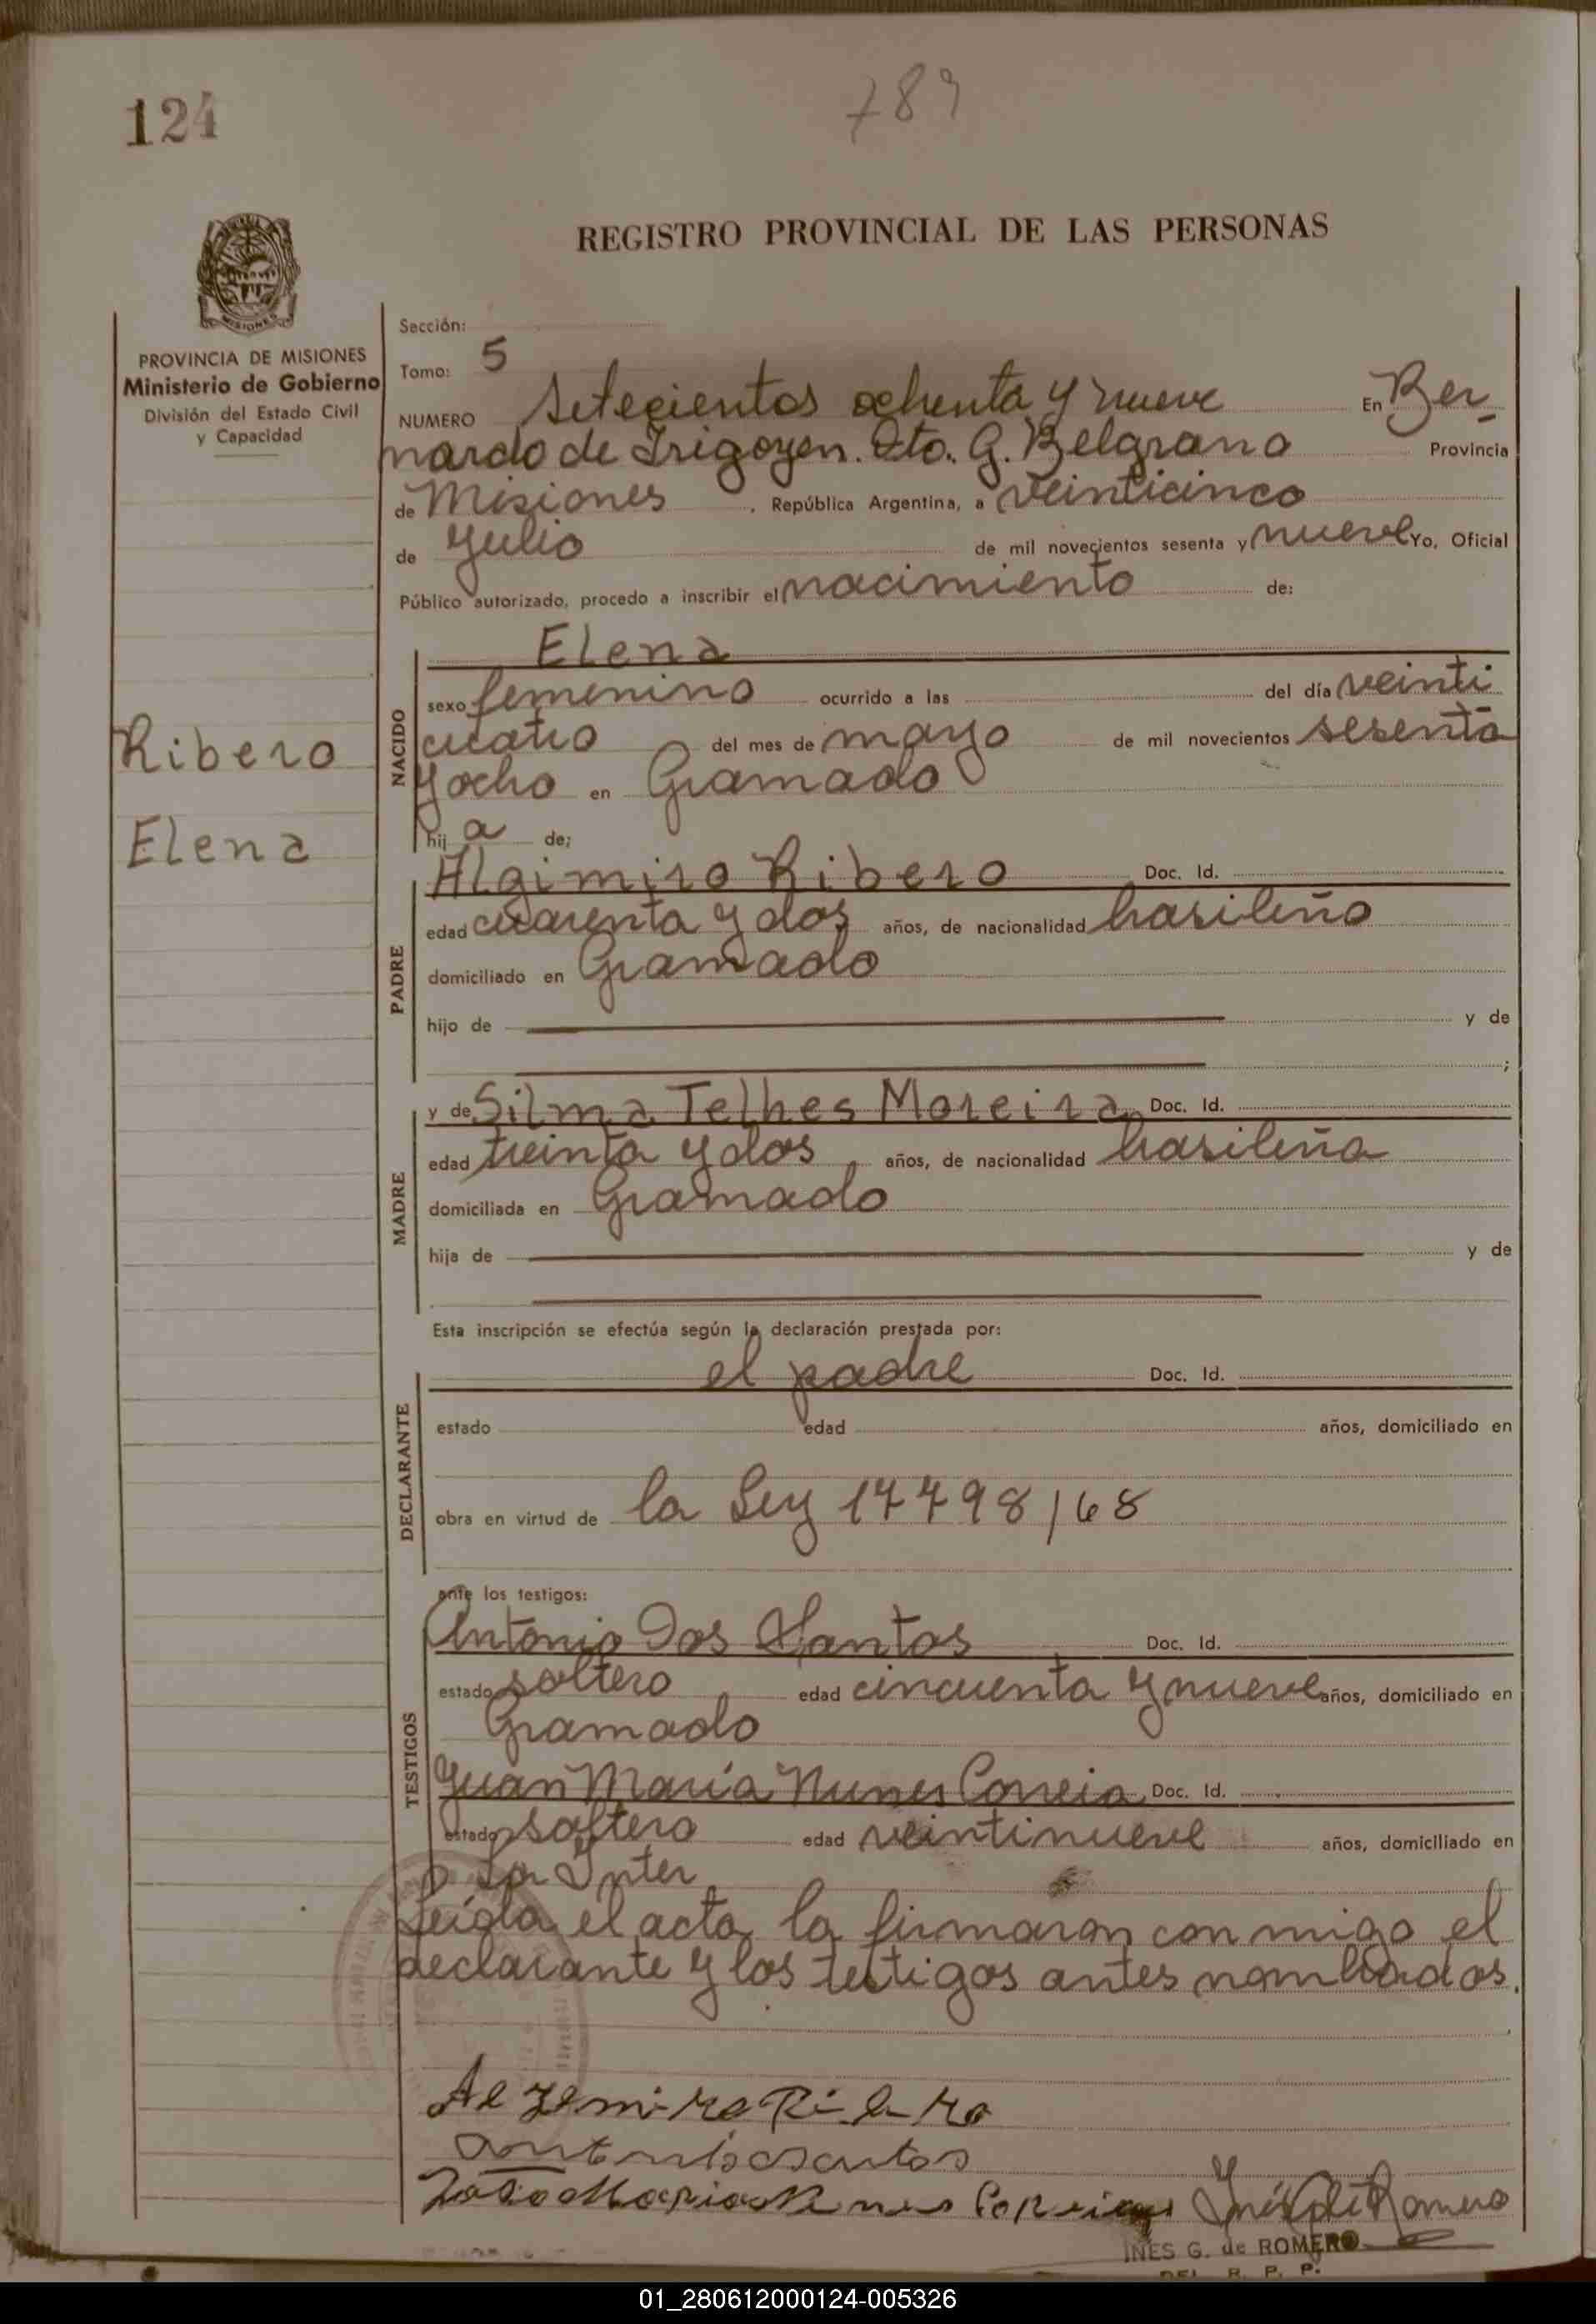 124
789
REGISTRO PROVINCIAL DE LAS PERSONAS
MISIONES
PROVINCIA DE MISIONES
Ministerio de Gobierno
División del Estado Civil
y Capacidad
Ribero
Elena
Sección:
Tomo: 5
NUMERO Setecientos ochenta y nueve En Ber_
nardo de Irigoyen. Dto. G. Belgrano Provincia
de Misiones, República Argentina, a veinticinco
de Julio de mil novecientos sesenta y nueve Yo, Oficial
Público autorizado, procedo a inscribir el nacimiento de:
NACIDO
Elena
sexo femenino ocurrido a las del día veinti
cuatro del mes de mayo de mil novecientos sesenta
y ocho en Gramado
hij a de;
PADRE
Algimiro Ribero Doc. Id.
edad cuarenta y dos años, de nacionalidad brasileño
domiciliado en Gramado
hijo de y de
;
MADRE
y de Silma Telhes Moreira Doc. Id.
edad treinta y dos, años, de nacionalidad brasileña
domiciliada en Gramado
hija de y de
Esta inscripción se efectúa según la declaración prestada por:
DECLARANTE
el padre Doc. Id.
estado edad años, domiciliado en
obra en virtud de la Ley 17798/68
ante los testigos:
TESTIGOS
Antonio Dos Santos Doc. Id.
estado soltero edad cincuenta y nueve años, domiciliado en
Gramado
Juan María Nunes Correia Doc. Id.
estado soltero edad veintinueve años, domiciliado en
La Inter
Leída el acta, la firmaron conmigo el
declarante y los testigos antes nombrados.
Inés G. de Romero
INES G. de ROMERO
DEL. R. P. P.
01_280612000124-005326